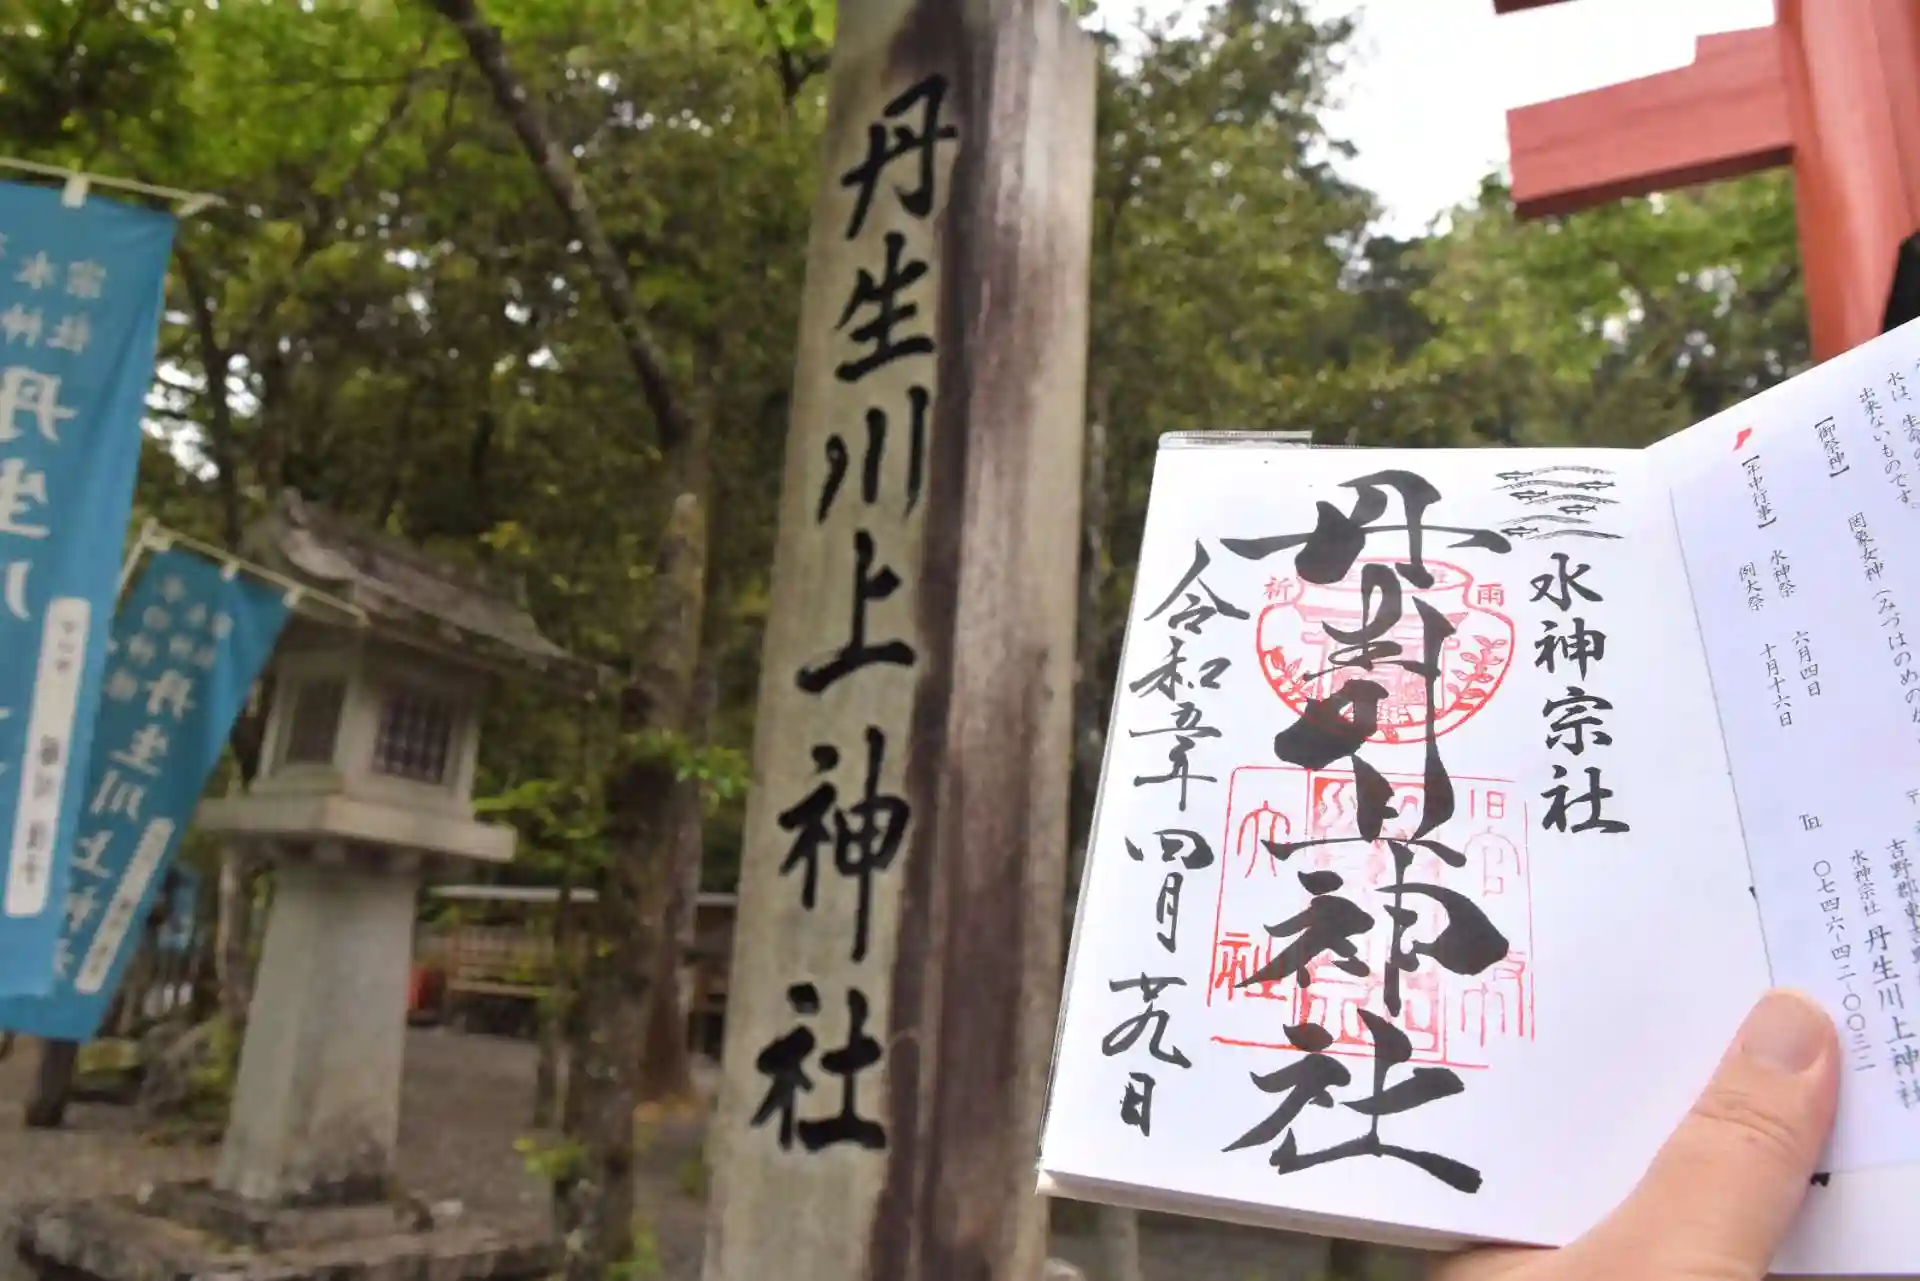 丹生川上神社
水神宗社
丹生川上神社
令和五年四月廿九日
祈雨
旧官幣大社
水は、生命の
出来ないものです。
【御祭神】 罔象女神（みづはのめの
【年中行事】 水神祭 六月四日
例大祭 十月十六日
吉野郡東吉野
水神宗社 丹生川上神社
℡ 〇七四六-四二-〇〇三二
丹生川
丹生川上神社